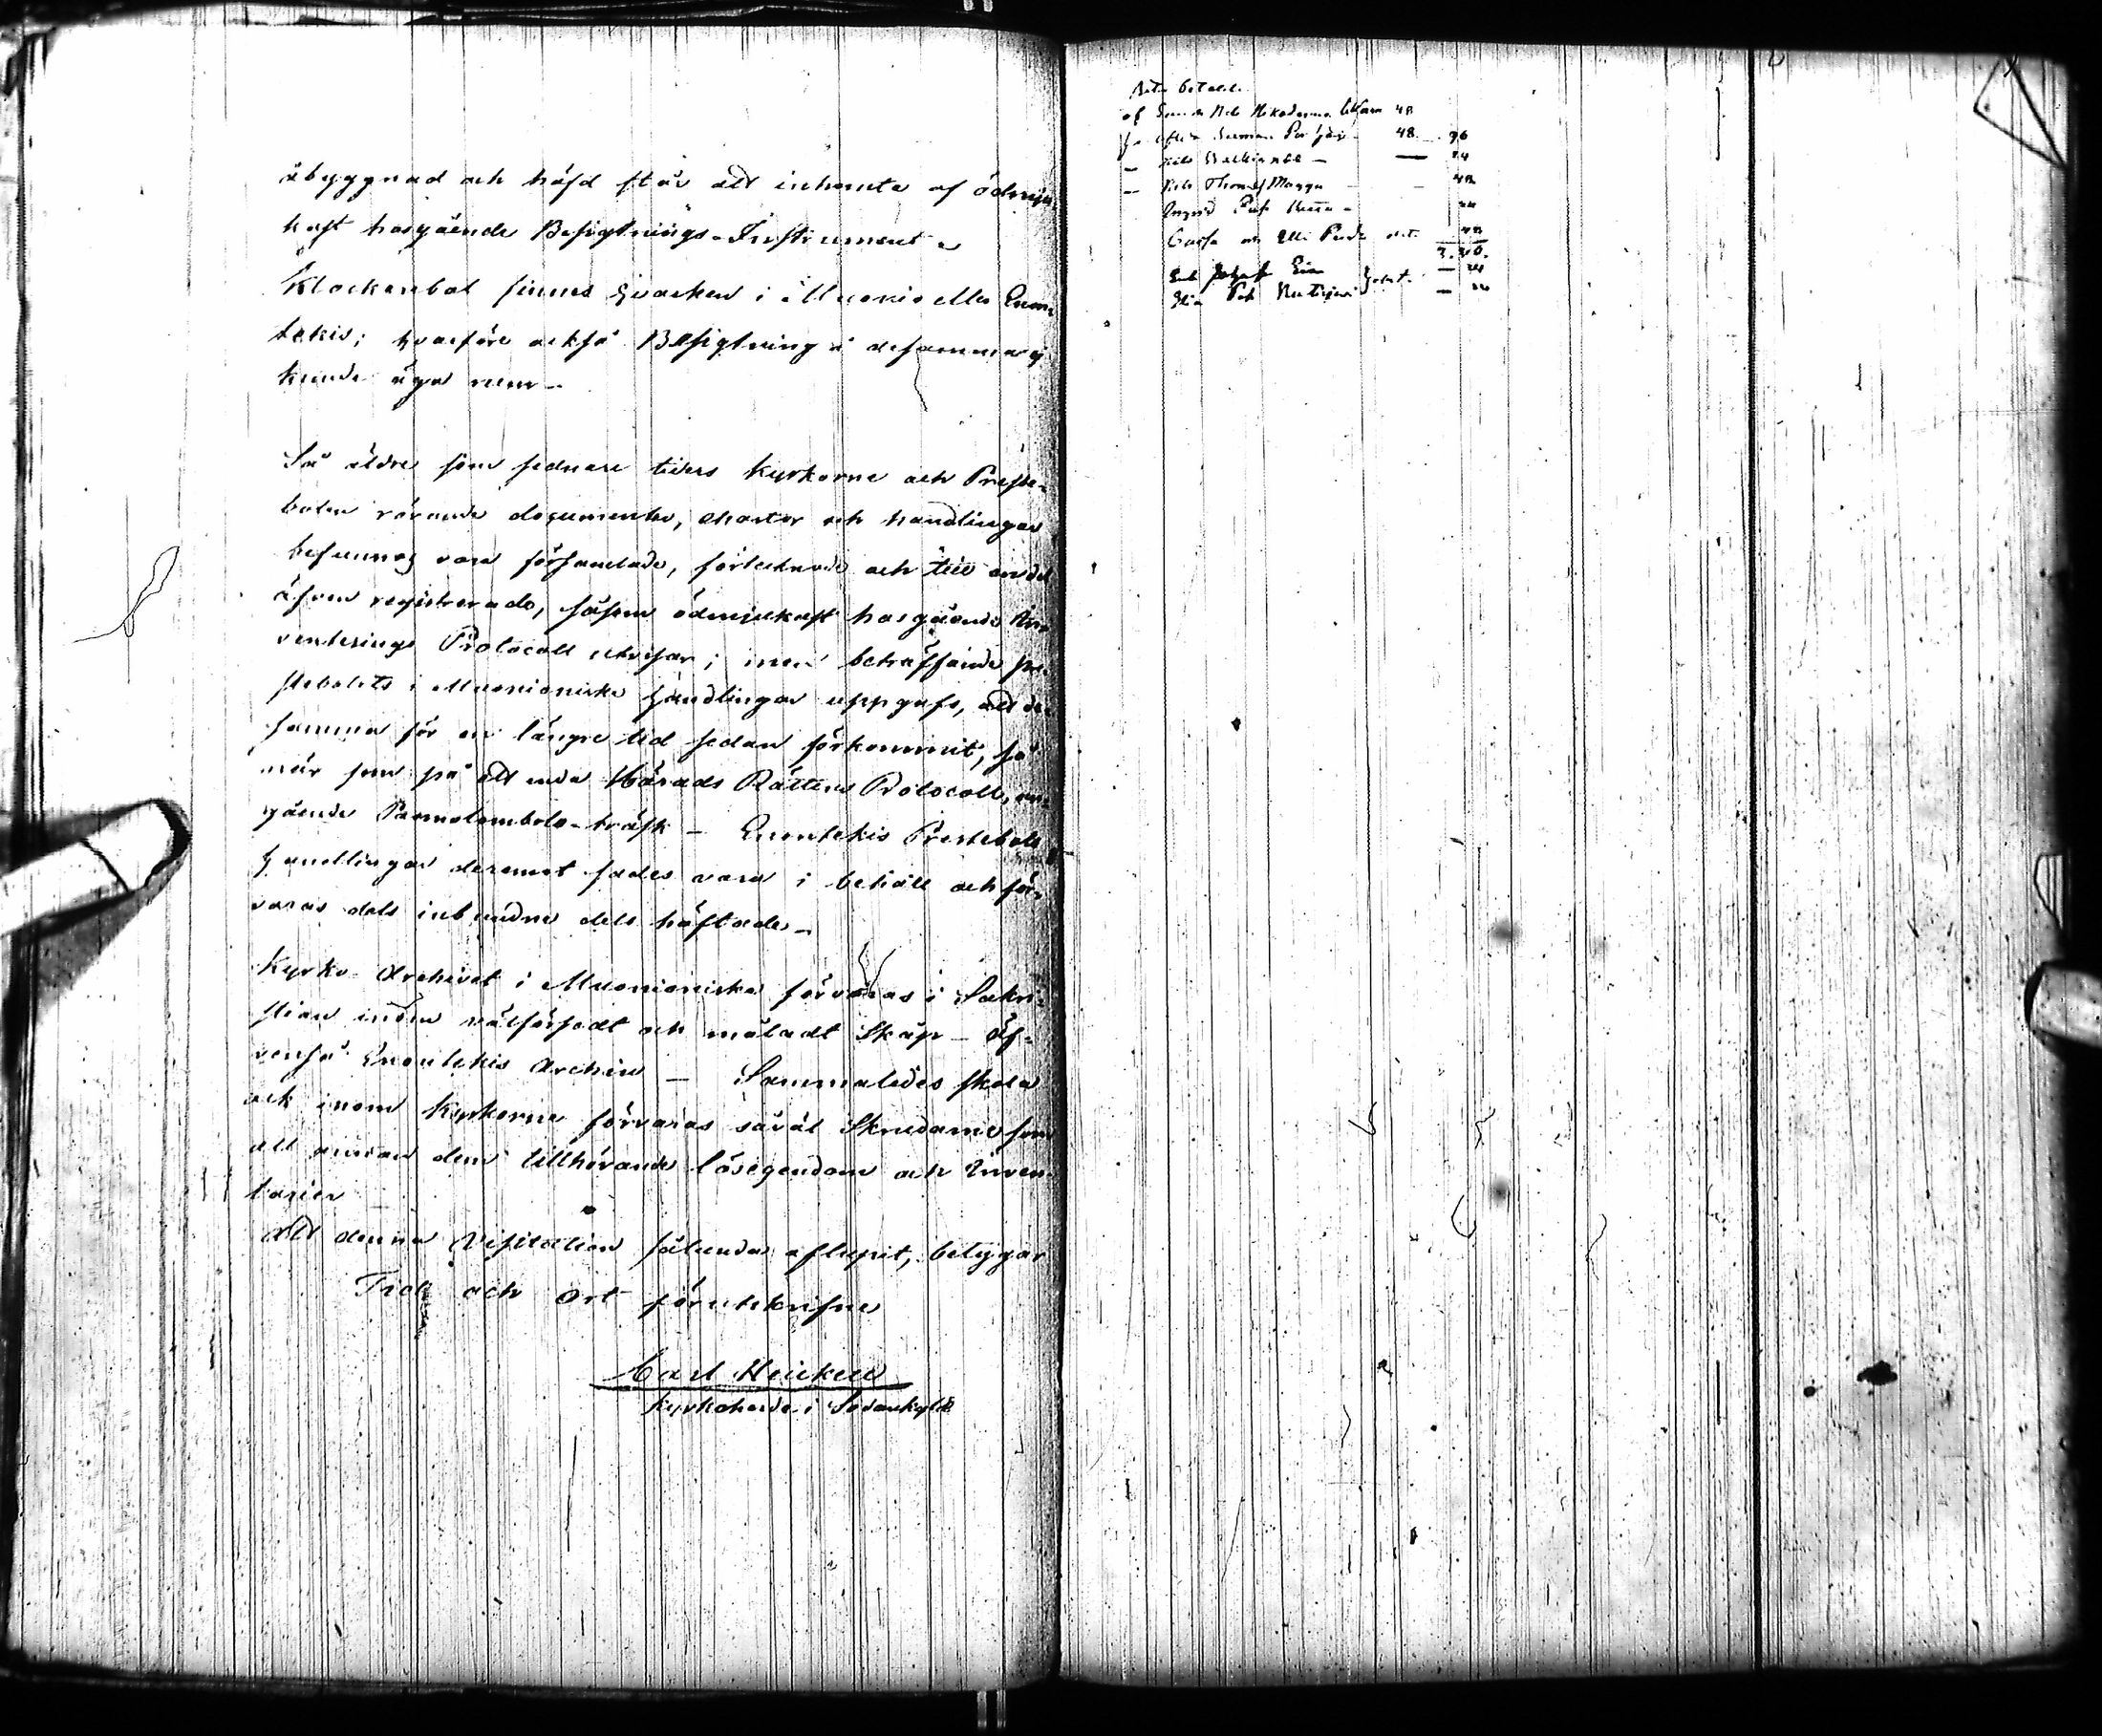 åbyggnad och häfd står att inhemta af ödmju
kast hosgående Besigtnings-Instrument.
Klockarebol finnes hvarken i Muonio eller Enon-
tekis; hvarföre också Besigtning å desamma ej
kunde äga rum _
Så äldre som sednare tiders Kyrkorne och Preste-
bolen rörande documenter, chartor och handlingar
befunnos vara församlade, förtecknade och till en del
äfven registrerade, såsom ödmjukast hosgående In-
venterings Protocoll utvisar; men beträffande pre-
stebolets i Muonioniska handlingar uppgafs, att de-
samma för en längre tid sedan förkommit, så
när som på ett enda Härads Rättens Protocoll, an-
gående träsk _ Enontekis Prestebols
handlingar deremot sades vara i behåll och för-
varas dels inbundne dels häftade _
Kyrko Archivet i Muonioniska förvaras i Sakri-
stian inom välförsedt och måladt Skåp _ Äf-
venså Enontekis Archiv _ Sammaledes skola
ock inom Kyrkorne förvaras såväl Skrudarne som
all annan dem tillhörande lösegendom och Inven-
tarier
Att denna Visitation sålunda aflupit, betygar
Tid och ort förutskrifne
Carl Heickell
Kyrkoherde i Sodankylä
betald
af Nils 48
48. 96
Nils 24
Nils Thomas Magga 48
Ingrid 24
och Elli 48
24
24